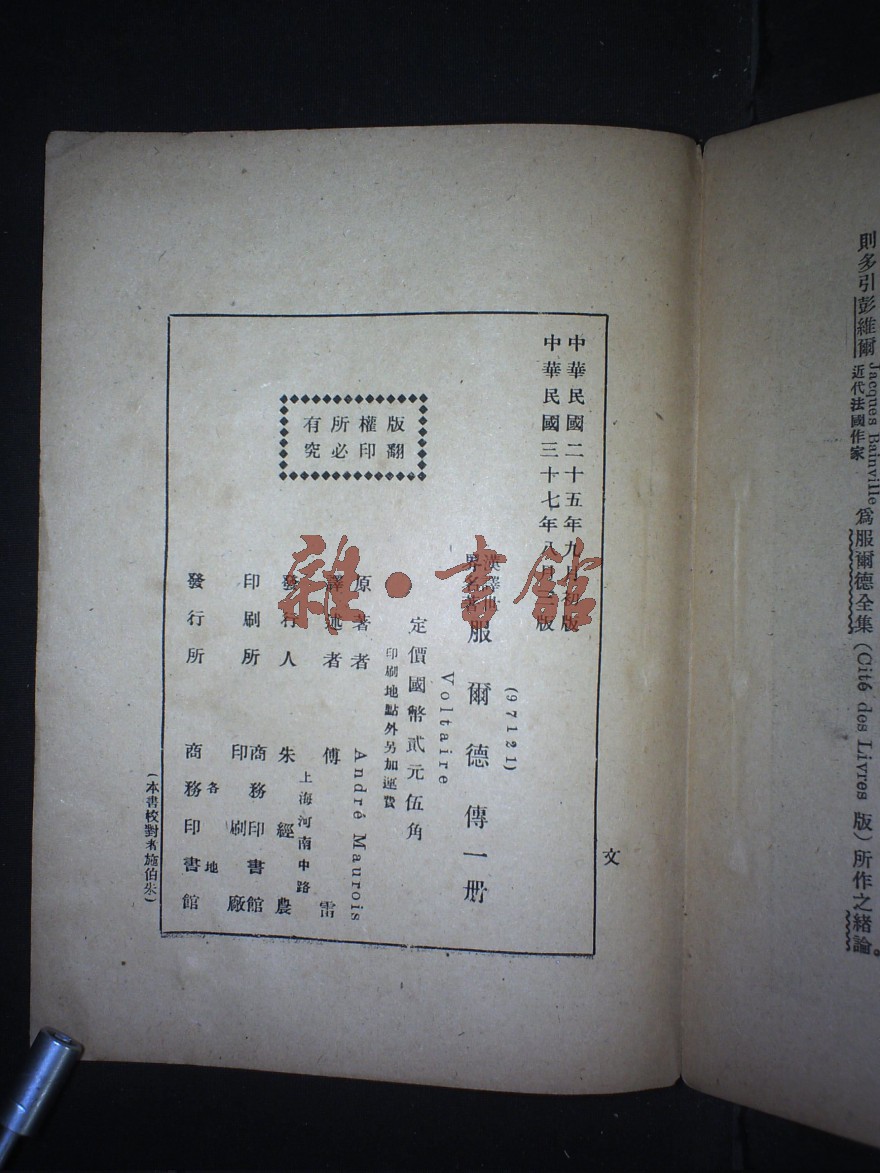 則多引彭維爾 Jacques Bainville 近代法國作家 爲服爾德全集 (Cité des Livres 版) 所作之緒論。
文
中華民國二十五年九月初版
中華民國三十七年八月 版
(97121)
漢譯世界名著 服爾德傳一册
Voltaire
定價國幣貳元伍角
印刷地點外另加運費
版權所有
翻印必究
原著者 André Maurois
譯述者 傅雷
發行人 朱經農
上海河南中路
印刷所 商務印書館印刷廠
各地
發行所 商務印書館
(本書校對者施伯朱)
雜·書館